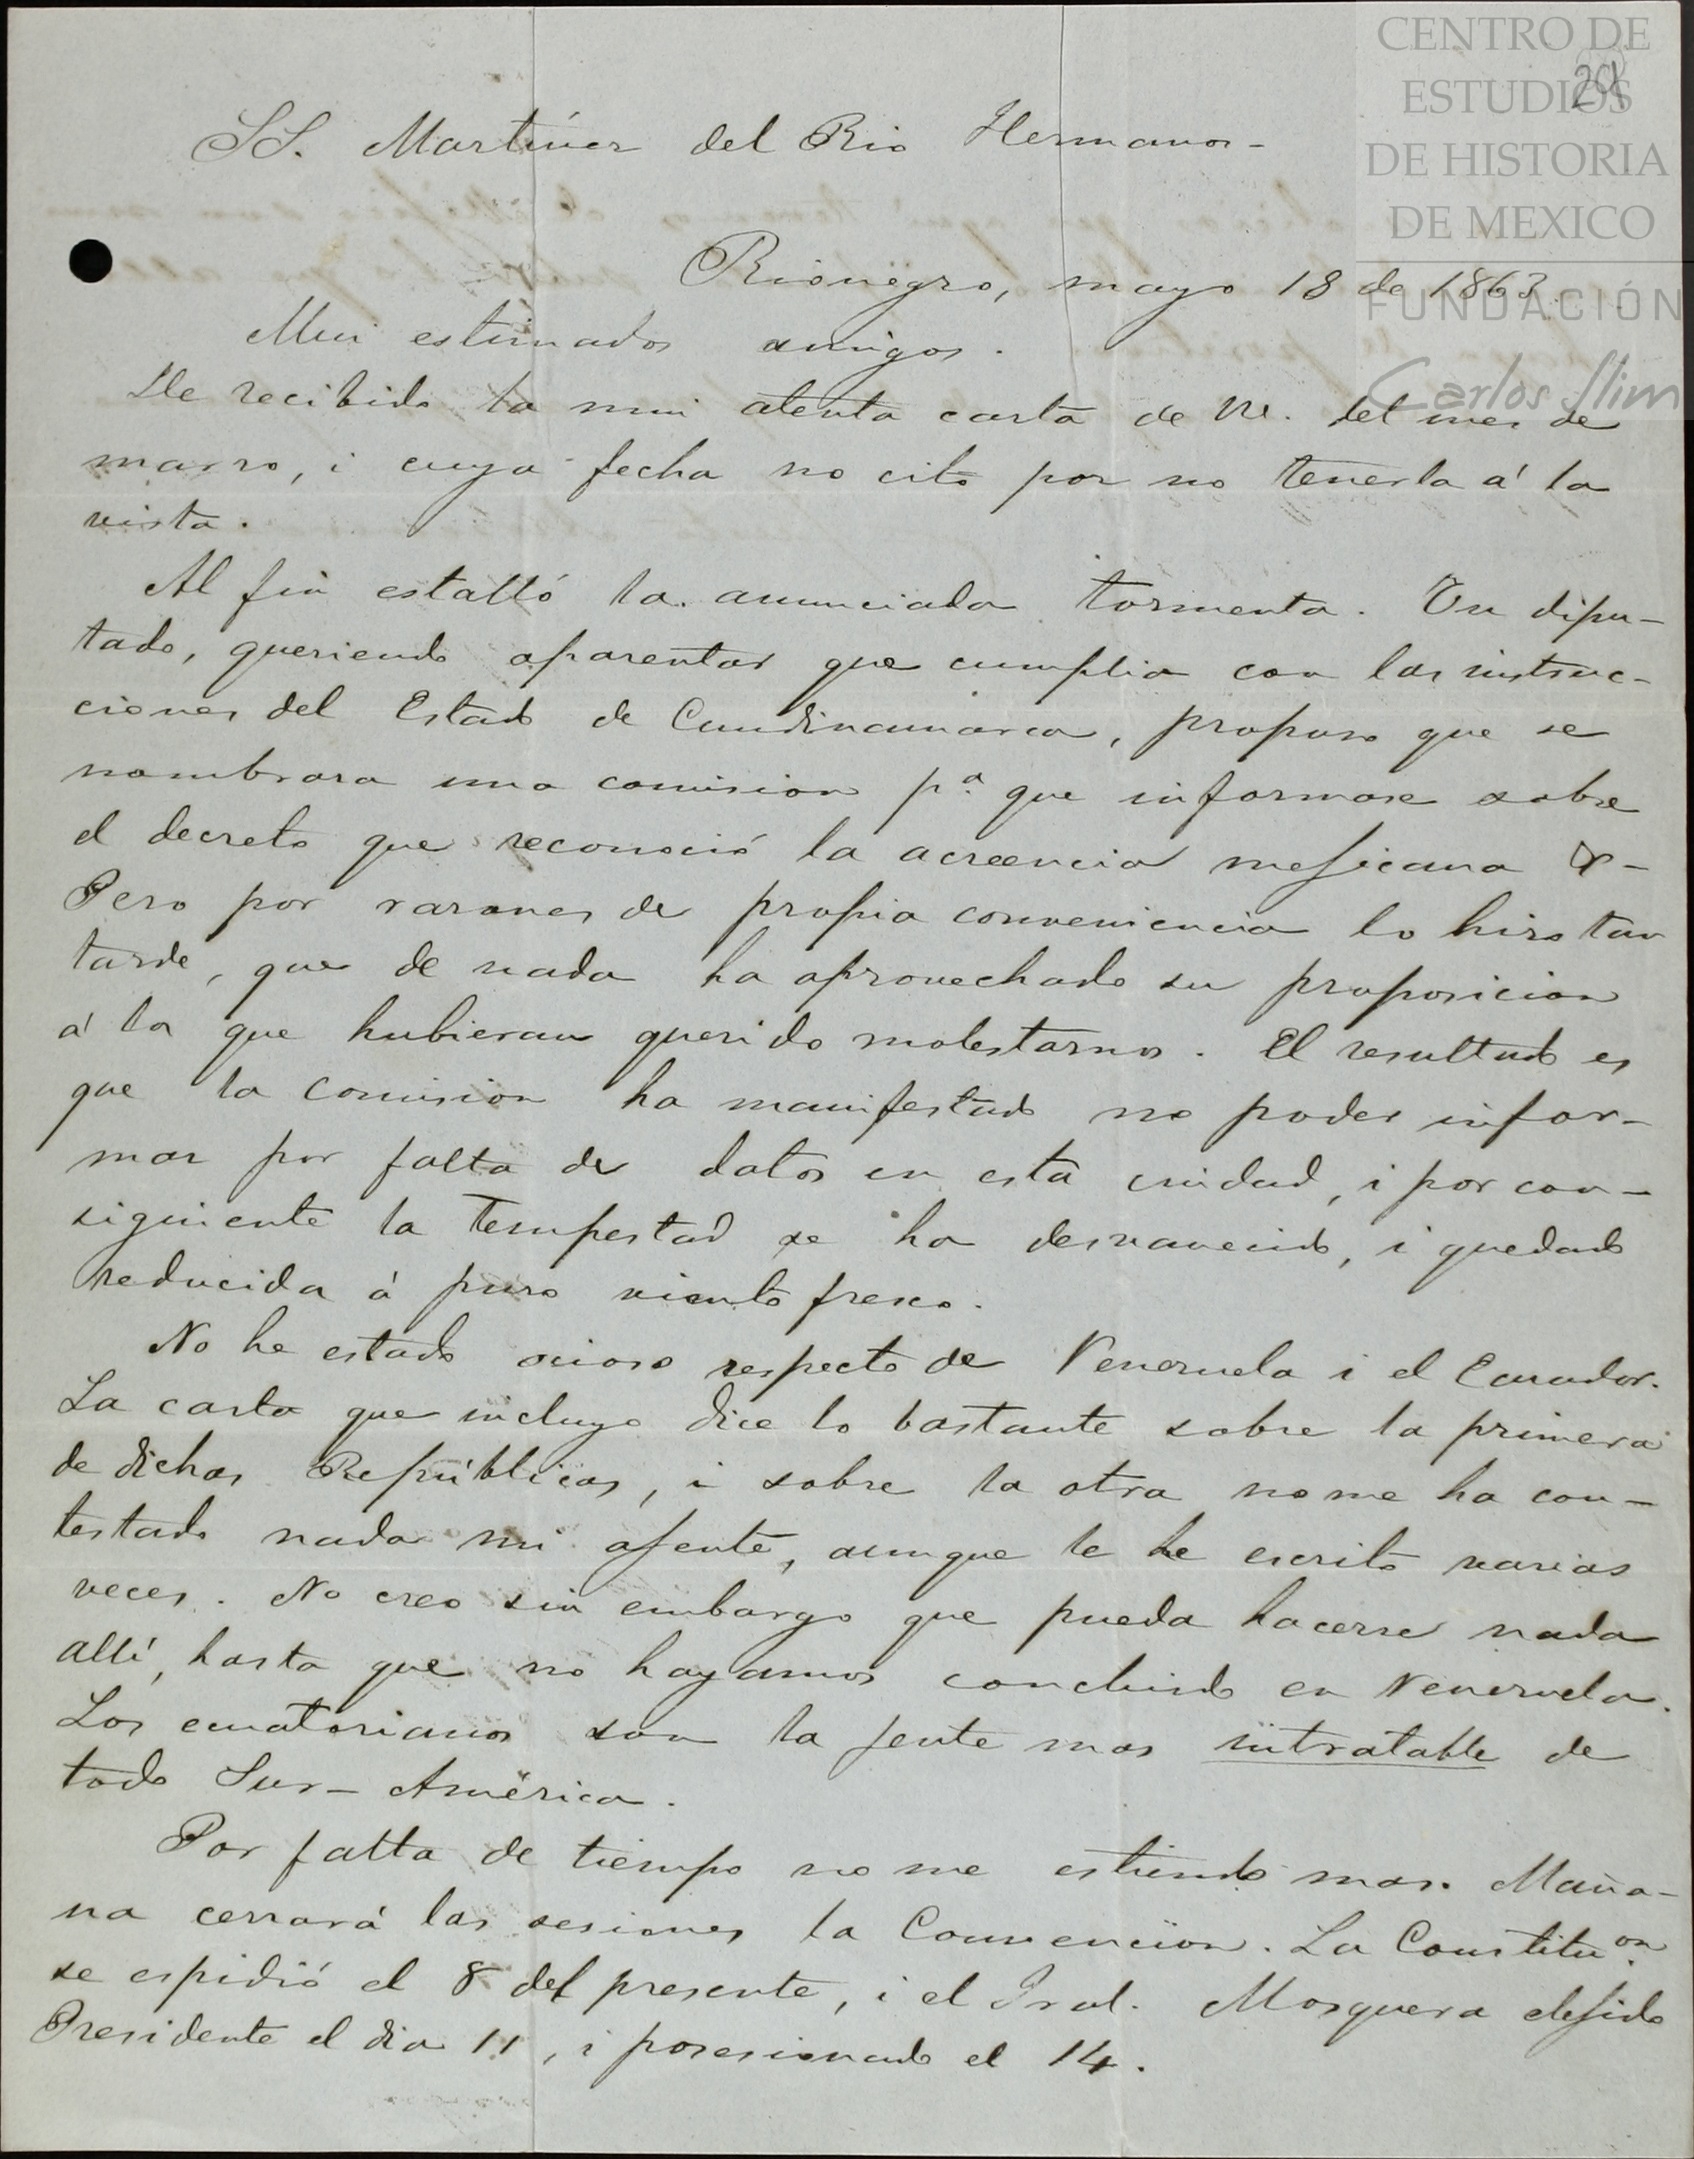 CENTRO DE
ESTUDIOS
DE HISTORIA
DE MEXICO
FUNDACIÓN
Carlos Slim
SS. Martínez del Rio Hermanos-
Rionegro, mayo 18 de 1863.
Mui estimados amigos.
He recibido la mui atenta carta de Vs. del mes de
marzo, i cuya fecha no cito por no tenerla á la
vista.
Al fin estalló la anunciada tormenta. Un dipu-
tado, queriendo aparentar que cumplia con las instruc-
ciones del Estado de Cundinamarca, propuso que se
nombrara una comision pª. que informase sobre
el decreto que reconoció la acreencia mejicana &-
Pero por razones de propia conveniencia lo hizo tan
tarde, que de nada ha aprovechado su proposicion
á los que hubieran querido molestarnos. El resultado es
que la comision ha manifestado no poder infor-
mar por falta de datos en esta ciudad, i por con-
siguiente la tempestad se ha desvanecido, i quedado
reducida á puro viento fresco.
No he estado ocioso respecto de Venezuela i el Ecuador.
La carta que incluyo dice lo bastante sobre la primera
de dichas Repúblicas, i sobre la otra no me ha con-
testado nada mi ajente, aunque le he escrito varias
veces. No creo sin embargo que pueda hacerse nada
allí, hasta que no hayamos concluido en Venezuela.
Los ecuatorianos son la jente mas intratable de
todo Sur-América.
Por falta de tiempo no me estiendo mas. Maña-
na cerrará las sesiones la Convencion. La Constituon.
se espidió el 8 del presente, i el Jral. Mosquera elejido
Presidente el dia 11, i posesionado el 14.